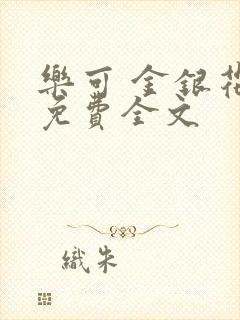 樂可 金銀花
免費全文
織朱